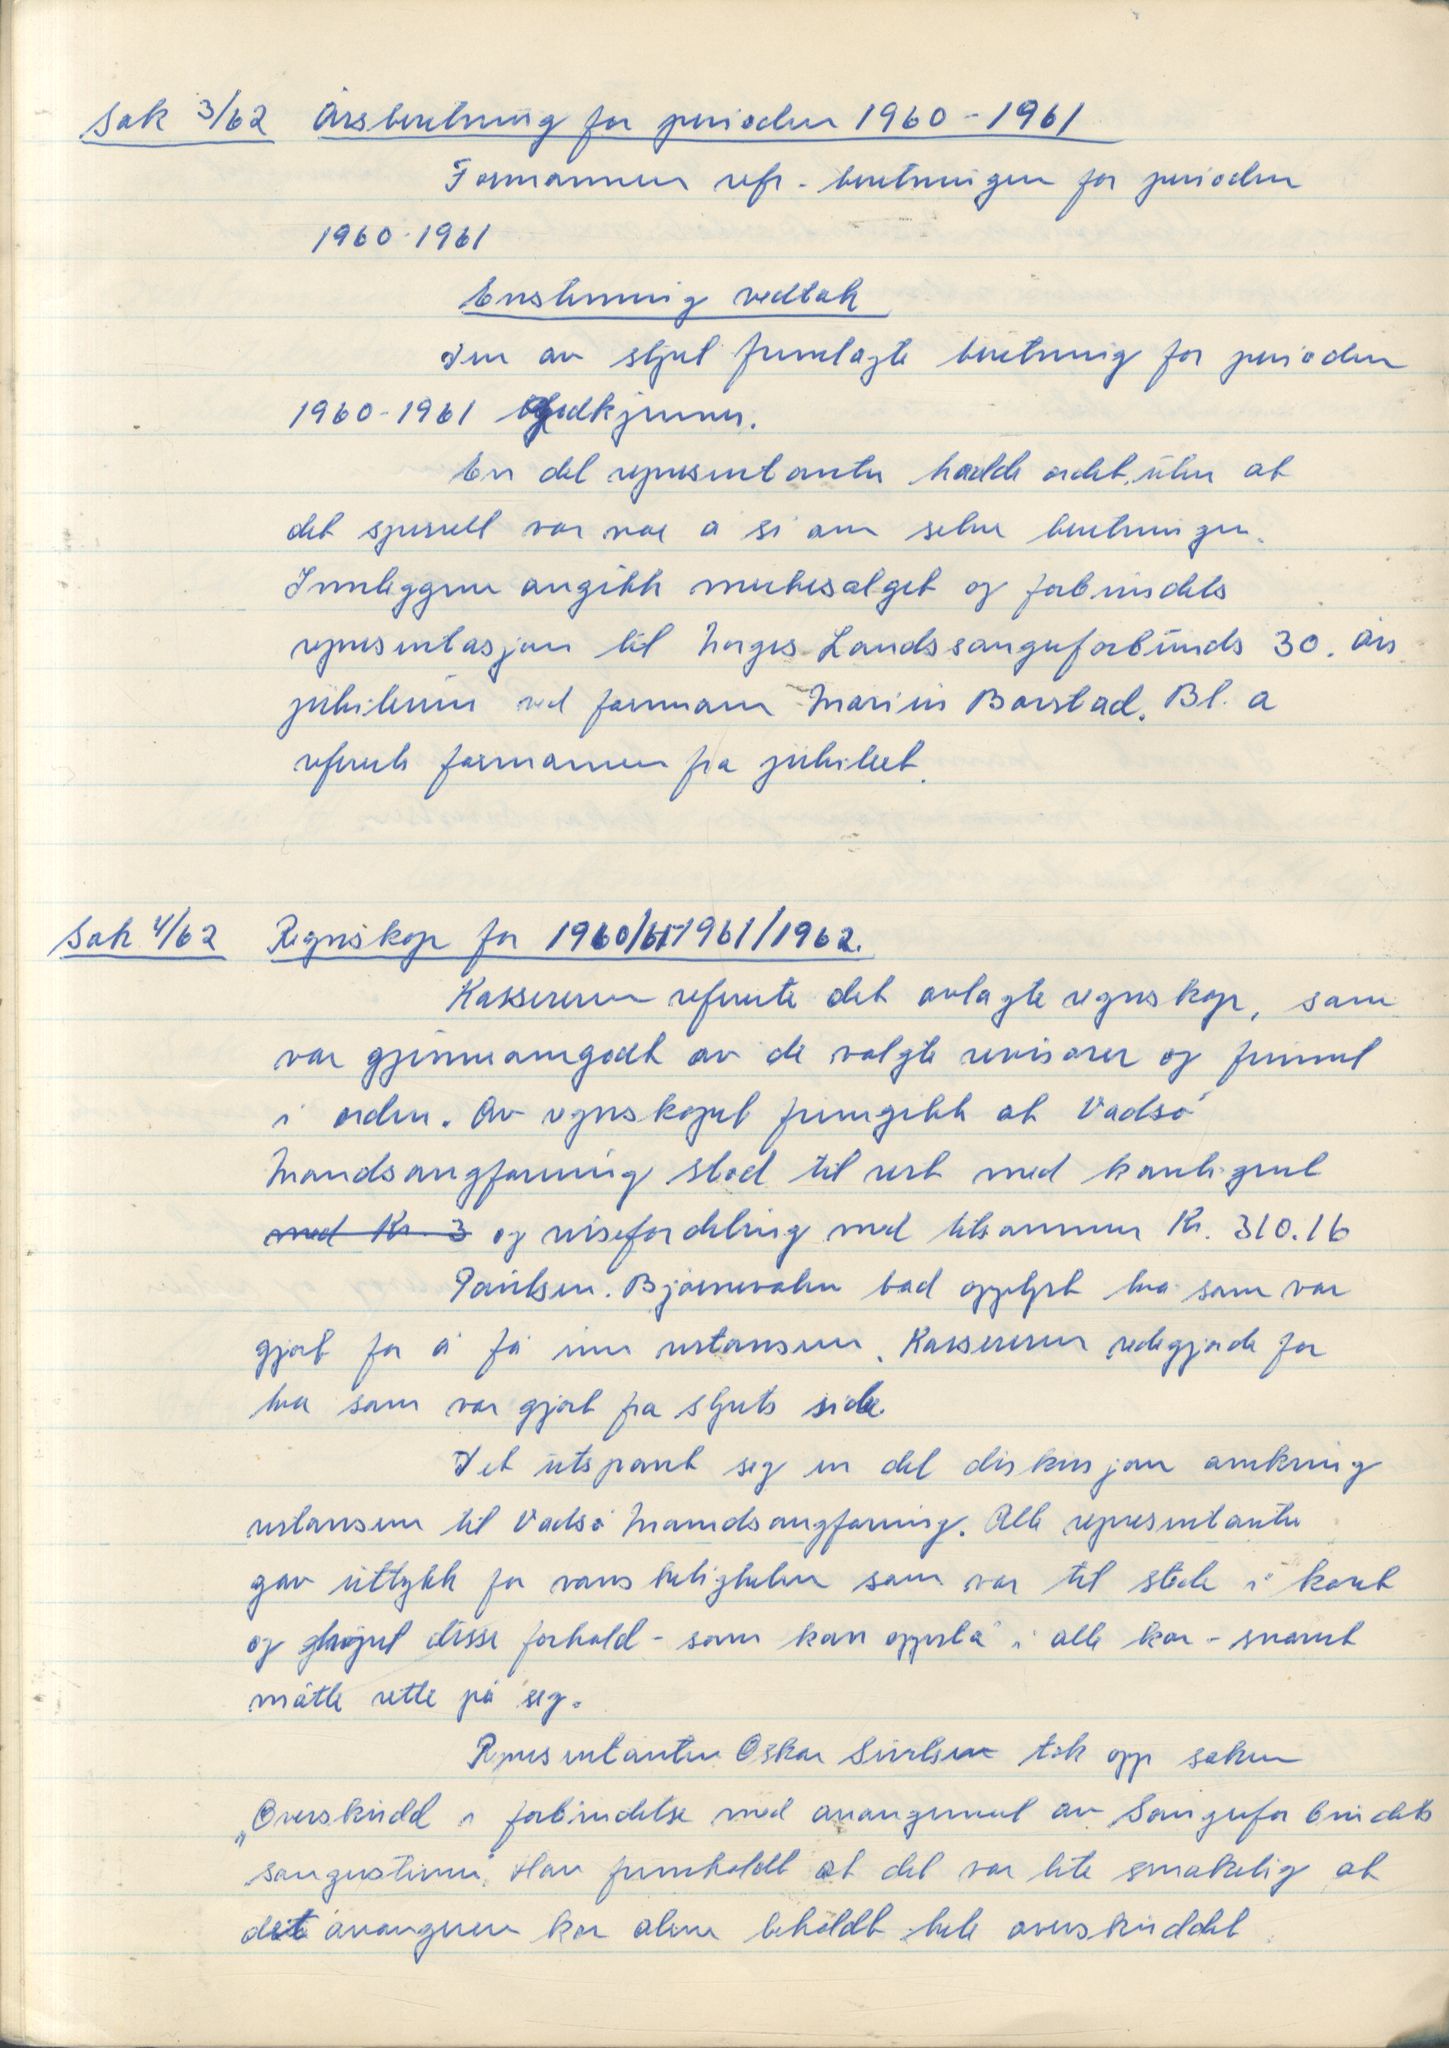 Sak 3/62 Årsberetning for perioden 1960-1961
Formannen ref. beretningen for perioden
1960-1961
Enstemmig vedtak
Den av styret fremlagte beretning for perioden
1960-1961 godkjennes.
En del representanter hadde ordet, uten at
det spesielt var noe å si om selve beretningen.
Innleggene angikk merkesalget og forbundets
representasjon til Norges Landssangerforbunds 30. års
jubileum ved formann Marius Barstad. Bl. a
referete formannen fra jubileet.
Sak 4/62 Regnskap for 1960/61-1961/1962.
Kassereren refererte det avlagte regnskap, som
var gjennomgådt av de valgte revisorer og funnet
i orden. Av regnskapet fremgikk at Vadsø
Mandsangforening stod til rest med kontigent
med Kr. 3 og reisefordeling med tilsammen Kr. 310.16
Paulsen. Bjørnevatn bad opplyst hva som var
gjort for å få inn restansen. Kassereren redegjorde for
hva som var gjort fra styrets side.
Det utspant seg en del diskusjon omkring
restansen til Vadsø Mandsangforening. Alle representanter
gav uttykk for vanskeligheten som var til stede i koret
og håpet disse forhold - som kan oppstå i alle kor - snarest
måtte rette på seg.
Representanten Oskar Sivertsen tok opp saken
„Overskudd i forbindelse med arrangement av Sangerforbundets
sangerstevne". Han fremholdt at det var lite smakelig at
det arrangerende kor alene beholdt hele overskuddet.